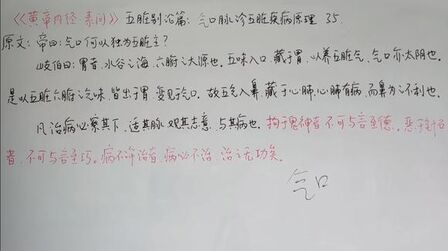 《黄帝内经·素问》五脏别论篇：气口脉诊五脏疾病原理 35.
原文：帝曰：气口何以独为五脏主？
岐伯曰：胃者，水谷之海，六腑之大源也。五味入口，藏于胃，以养五脏气，气口亦太阴也。
是以五脏六腑之气味，皆出于胃，变见于气口。故五气入鼻，藏于心肺，心肺有病，而鼻为之不利也。
凡治病必察其下，适其脉，观其志意，与其病也。拘于鬼神者，不可与言至德。恶于针石
者，不可与言至巧。病不许治者，病必不治，治之无功矣。
气口